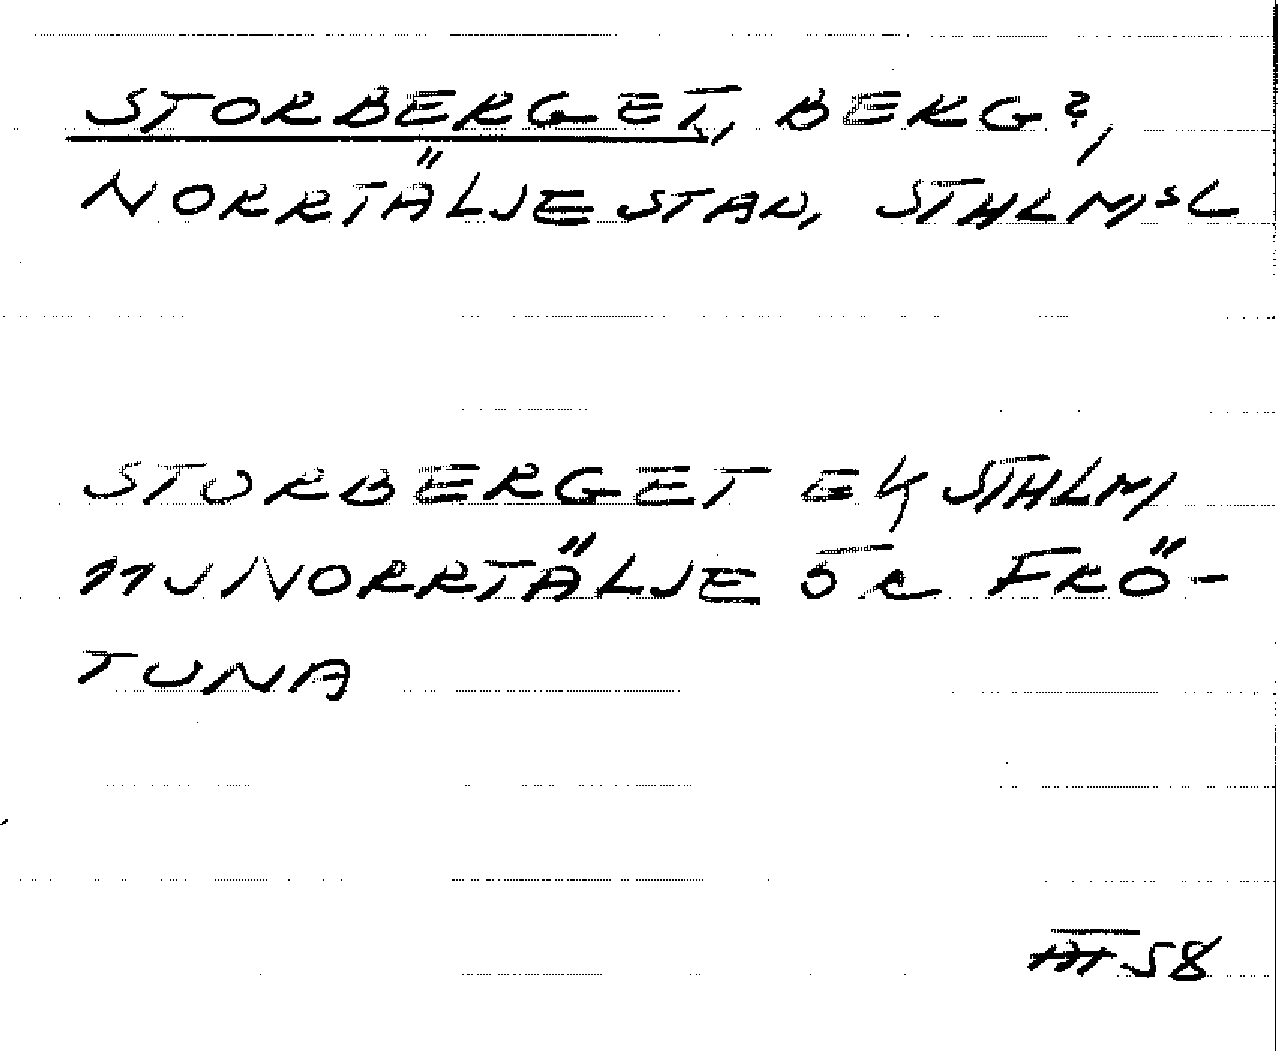 STORBERGET, BERG?,
NORRTÄLJE STAD, STHLMSL
STORBERGET EK STHLM
11J NORRTÄLJE 5c FRÖ-
TUNA
58